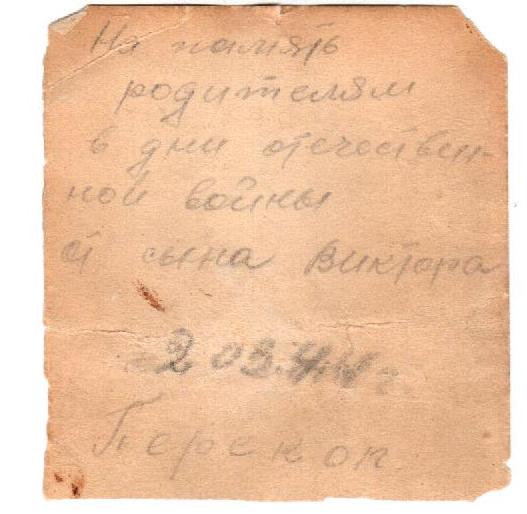 На память
родителям
в дни отечествен-
ной войны
от сына Виктора
2 03.44 г.
Перекоп